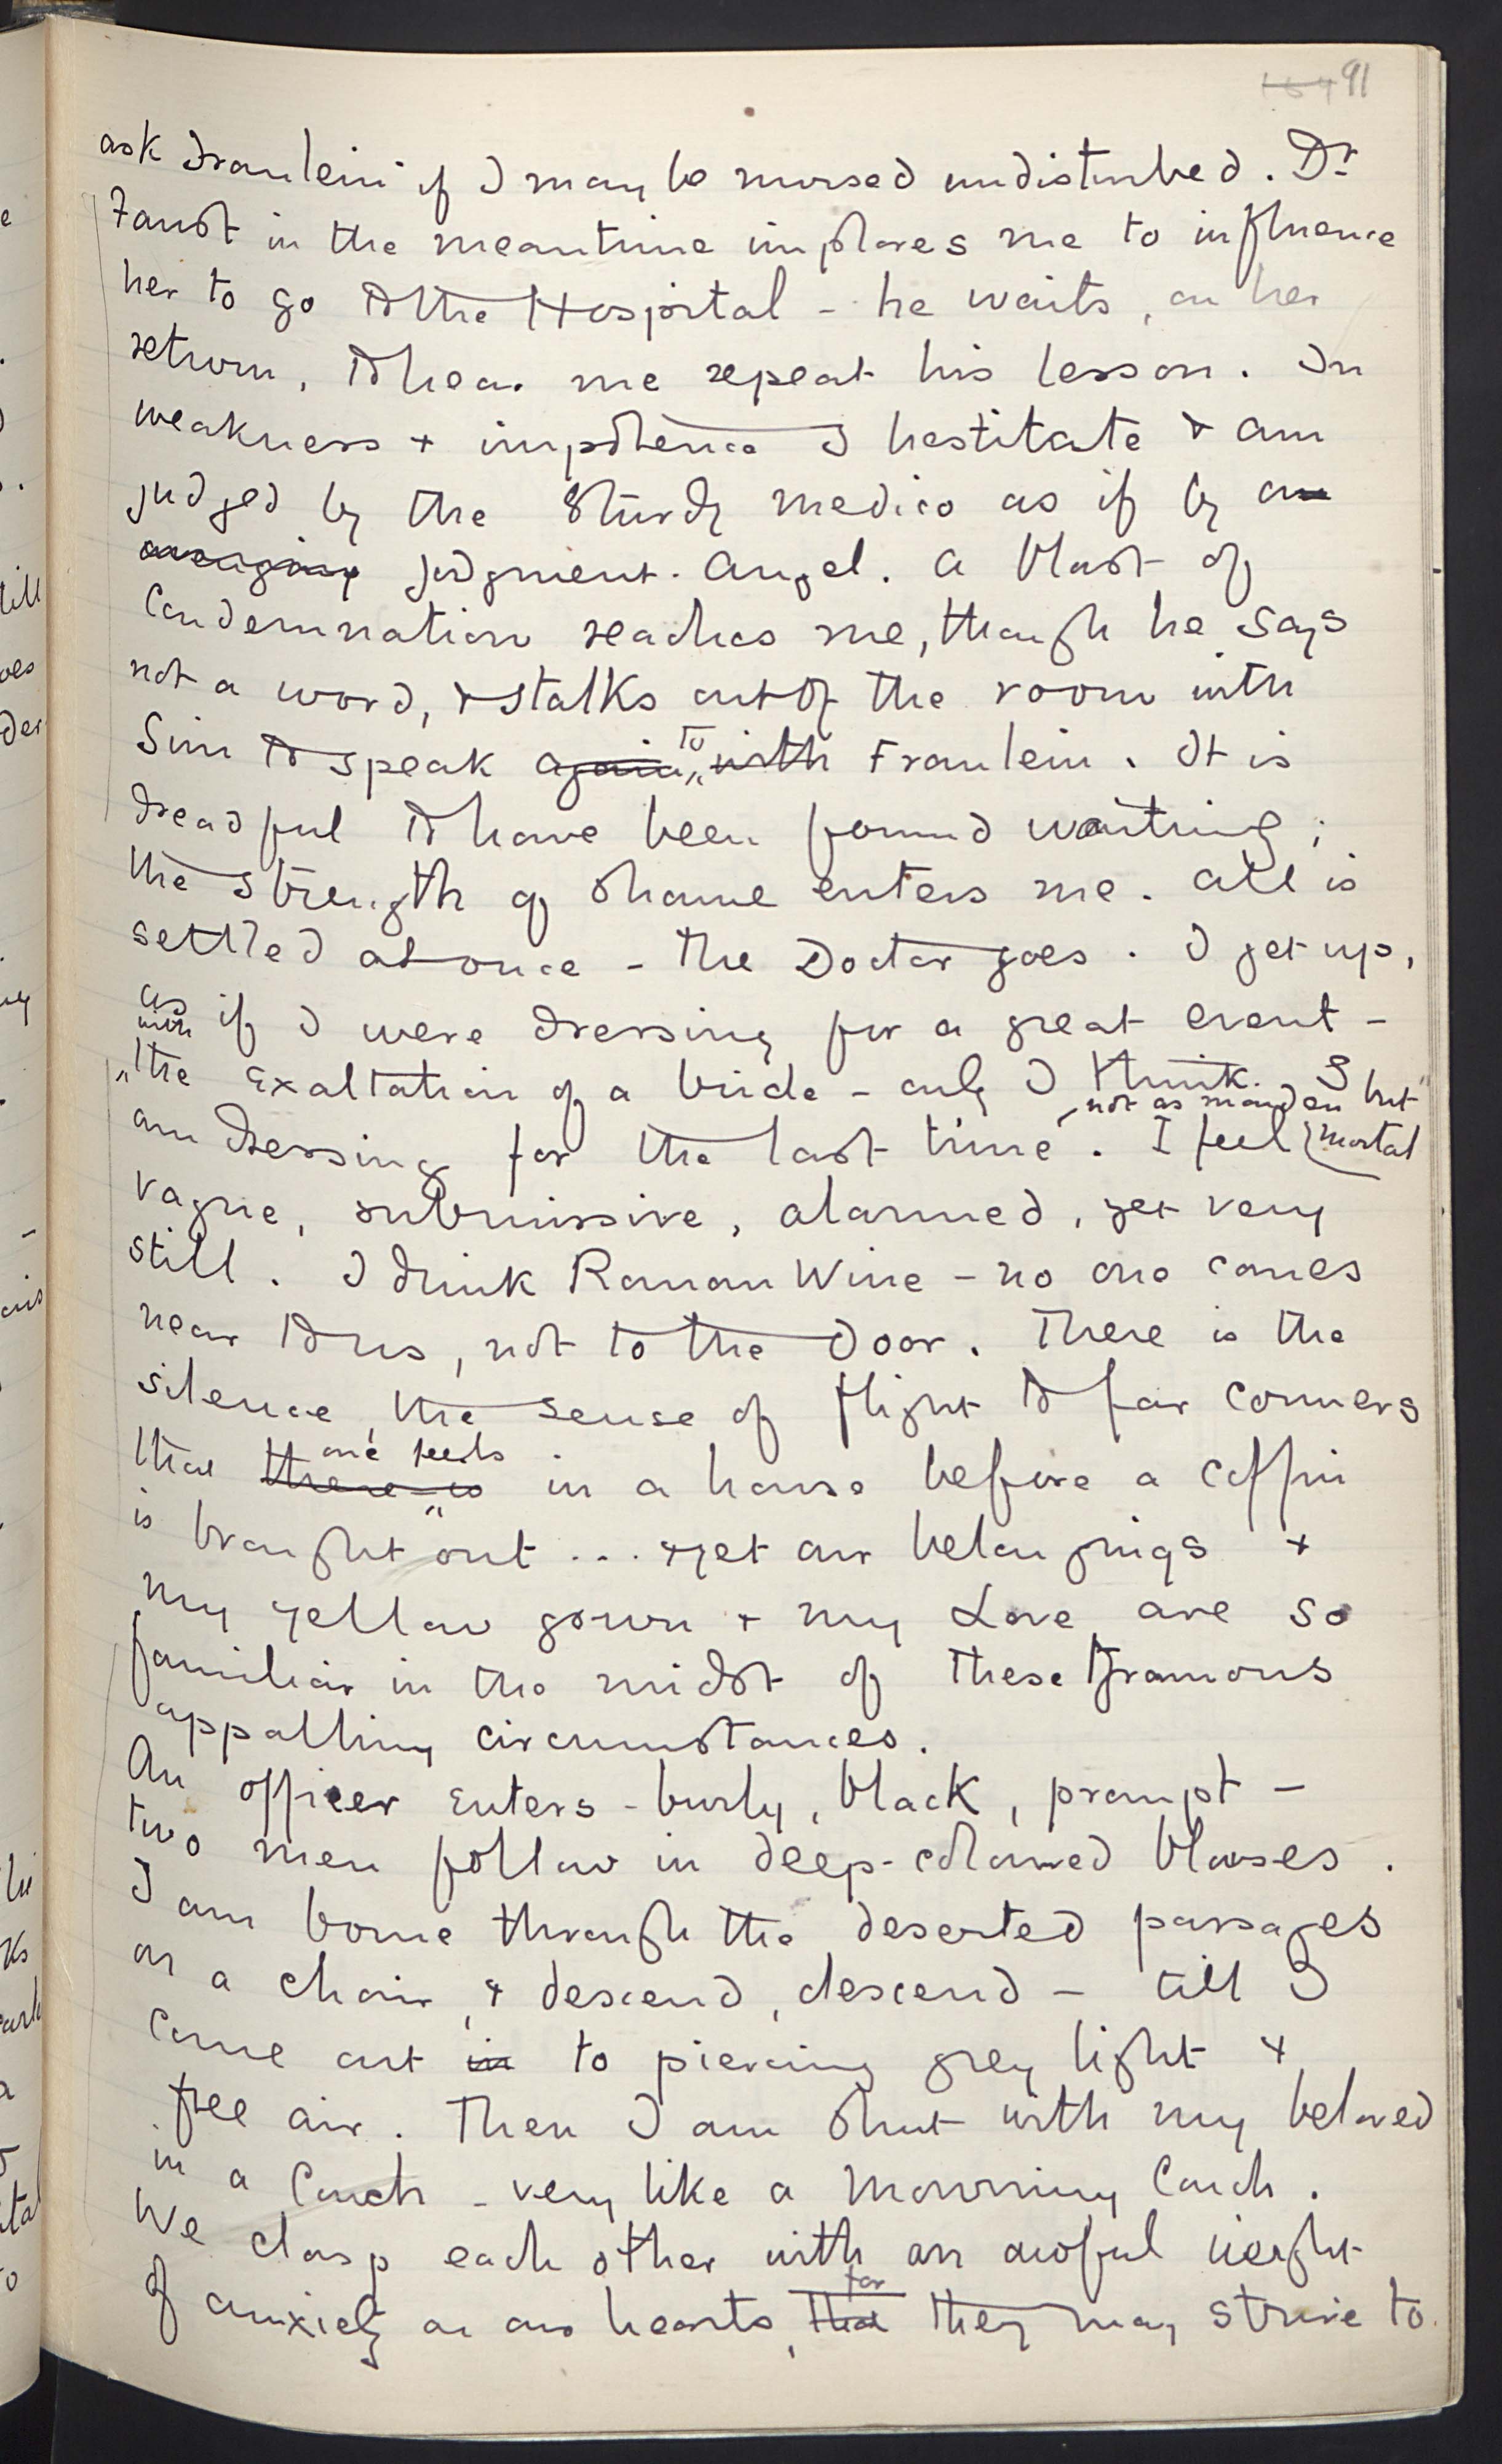 91
ask Fraulein if I may be nursed undisturbed. Dr
Faust in the meantime implores me to influence
her to go to the Hospital - he waits, on her
return, to hear me repeat his lesson. In
weakness + impotence I hestitate & am
judged by the sturdy medico as if by an
avenging judgment-angel. A blast of
Condemnation reaches me, though he says
not a word, & stalks out of the room with
Sim to speak again to with Fraulein. It is
dreadful to have been found wanting;
the strength of shame enters me. All is
settled at once - the Doctor goes. I get up,
as if I were dressing for a great event -
with the exaltation of a bride - only I think I
am dressing for the last time. I feel, not as maiden but mortal
vague, submissive, alarmed, yet very
still. I drink Roman Wine - no one comes
near to us, not to the door. There is the
silence, the sense of flight to far corners
that there is one feels in a house before a coffin
is brought out ... & yet our belongings +
my yellow gown + my Love are so
familiar in the midst of these tyrannous
appalling circumstances.
An officer enters - burly, black, prompt -
two men follow in deep-coloured blouses.
I am borne through the deserted passages
on a chair, & descend, descend - till I
come out in to piercing grey light &
free air. Then I am shut with my beloved
in a Coach - very like a Mourning Coach.
We clasp each other with an awful weight
of anxiety on our hearts, that for they may strive to